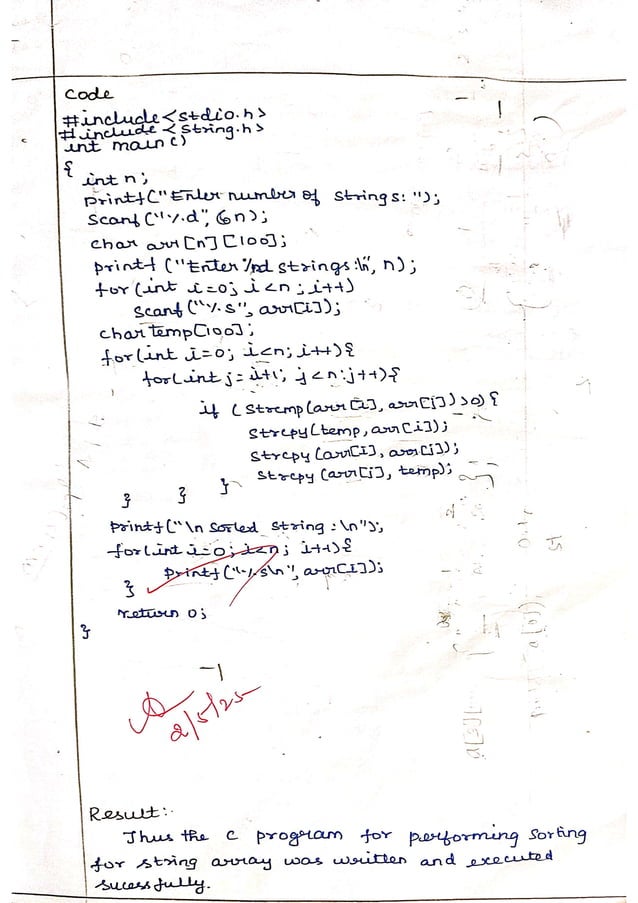 Code
#include<stdio.h>
#include<string.h>
int main()
{
int n;
printf("Enter number of strings: ");
scanf("%d", &n);
char arr[n][100];
printf("Enter %d strings:\n", n);
for(int i=0; i<n; i++)
scanf("%s", arr[i]);
char temp[100];
for(int i=0; i<n; i++){
for(int j=i+1; j<n; j++){
if (strcmp(arr[i], arr[j])>0){
strcpy(temp, arr[i]);
strcpy(arr[i], arr[j]);
strcpy(arr[j], temp);
} } }
printf("\n Sorted string :\n");
for(int i=0; i<n; i++){
printf("%s\n", arr[i]);
}
return 0;
}
2/5/25
Result:-
Thus the c program for performing sorting
for string array was written and executed
sucessfully.